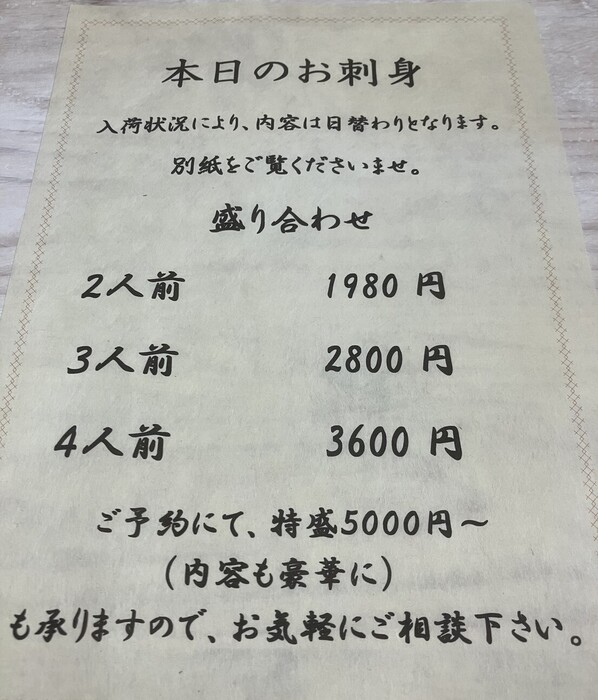 本日のお刺身
入荷状況により、内容は日替わりとなります。
別紙をご覧くださいませ。
盛り合わせ
2人前 1980 円
3人前 2800 円
4人前 3600 円
ご予約にて、特盛5000円～
(内容も豪華に)
も承りますので、お気軽にご相談下さい。